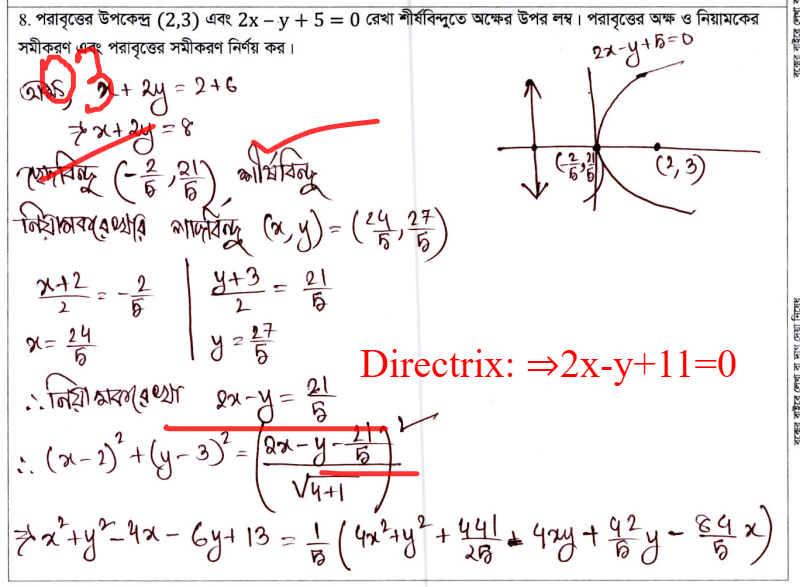 8. পরাবৃত্তের উপকেন্দ্র (2,3) এবং 2x – y + 5 = 0 রেখা শীর্ষবিন্দুতে অক্ষের উপর লম্ব। পরাবৃত্তের অক্ষ ও নিয়ামকের
সমীকরণ এবং পরাবৃত্তের সমীকরণ নির্ণয় কর।
03
অক্ষ, x + 2y = 2+6
⇒ x + 2y = 8
(-2/5, 21/5) শীর্ষবিন্দু
2x-y+5=0
(-2/5, 21/5)
(2, 3)
নিয়ামকরেখার পাদবিন্দু (x, y) = (24/5, 27/5)
(x+2)/2 = -2/5 | (y+3)/2 = 21/5
x = 24/5 | y = 27/5
Directrix: ⇒2x-y+11=0
∴ নিয়ামকরেখা 2x - y = 21/5
∴ (x-2)² + (y-3)² = ((2x - y - 21/5)/√(4+1))²
⇒ x² + y² - 4x - 6y + 13 = 1/5 (4x² + y² + 441/25 - 4xy + 42/5 y - 84/5 x)